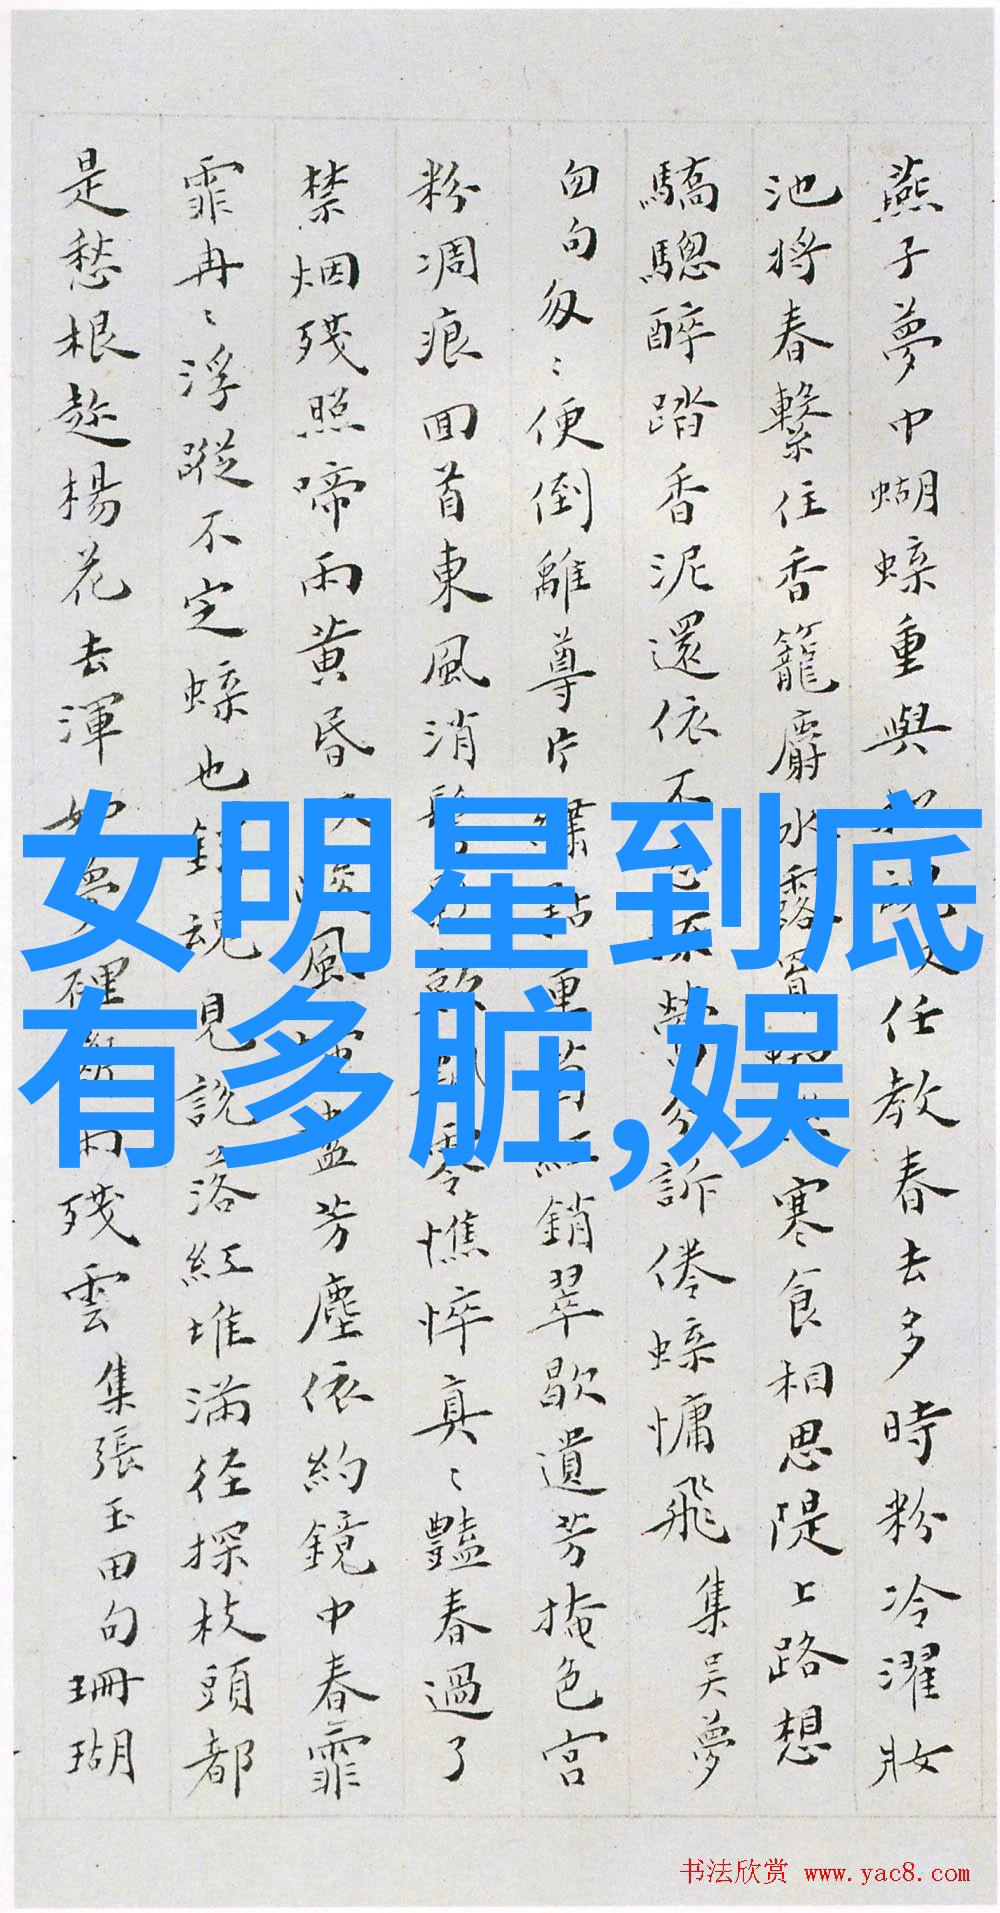 燕子夢中蝴蝶重與
任教春去多時粉冷濯妝
池將春繫住香籠麝水露
寒食相思隄上路想
驕驄醉踏香泥還依不
訴倦蝶慵飛 集吴夢
匆匆便倒離尊片
紅銷翠歇遺芳掩色宫
粉凋痕回首東風消
零憔悴真〻豔春過了
禁烟殘照啼雨黄昏
風
芳塵依約鏡中春霏
霏冉〻浮蹤不定蝶也
魂見説落紅堆滿径探枝頭都
是愁根趁楊花去渾如
殘雲 集張玉田句 珊瑚
女明星到底
有多脏,娱
书法欣赏 www.yac8.com